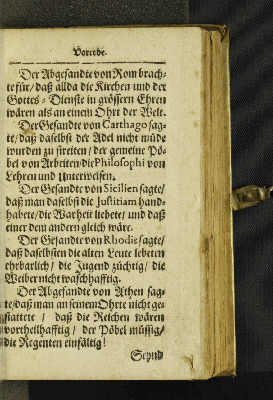 Vorrede.
Der Abgesandte von Rom brach-
te für/ daß allda die Kirchen und der
Gottes-Dienste in grössern Ehren
wären als an einem Ohrt der Welt.
Der Gesandte von Carthago sag-
te/ daß daselbst der Adel nicht müde
wurden zu streiten/ der gemeine Pö-
bel von Arbeiten/ die Philosophi von
Lehren und Unterweisen.
Der Gesandte von Sicilien sagte/
daß man daselbst die Justitiam hand-
habete/ die Warheit liebete/ und daß
einer dem andern gleich wäre.
Der Gesandte von Rhodis sagte/
daß daselbsten die alten Leute lebeten
ehrbarlich/ die Jugend züchtig/ die
Weiber nicht waschhafftig.
Der Abgesandte von Athen sag-
te/ daß man an seinem Ohrte nicht ge-
stattete / daß die Reichen wären
vortheilhafftig/ der Pöbel müssig/
die Regenten einfältig!
Seynd